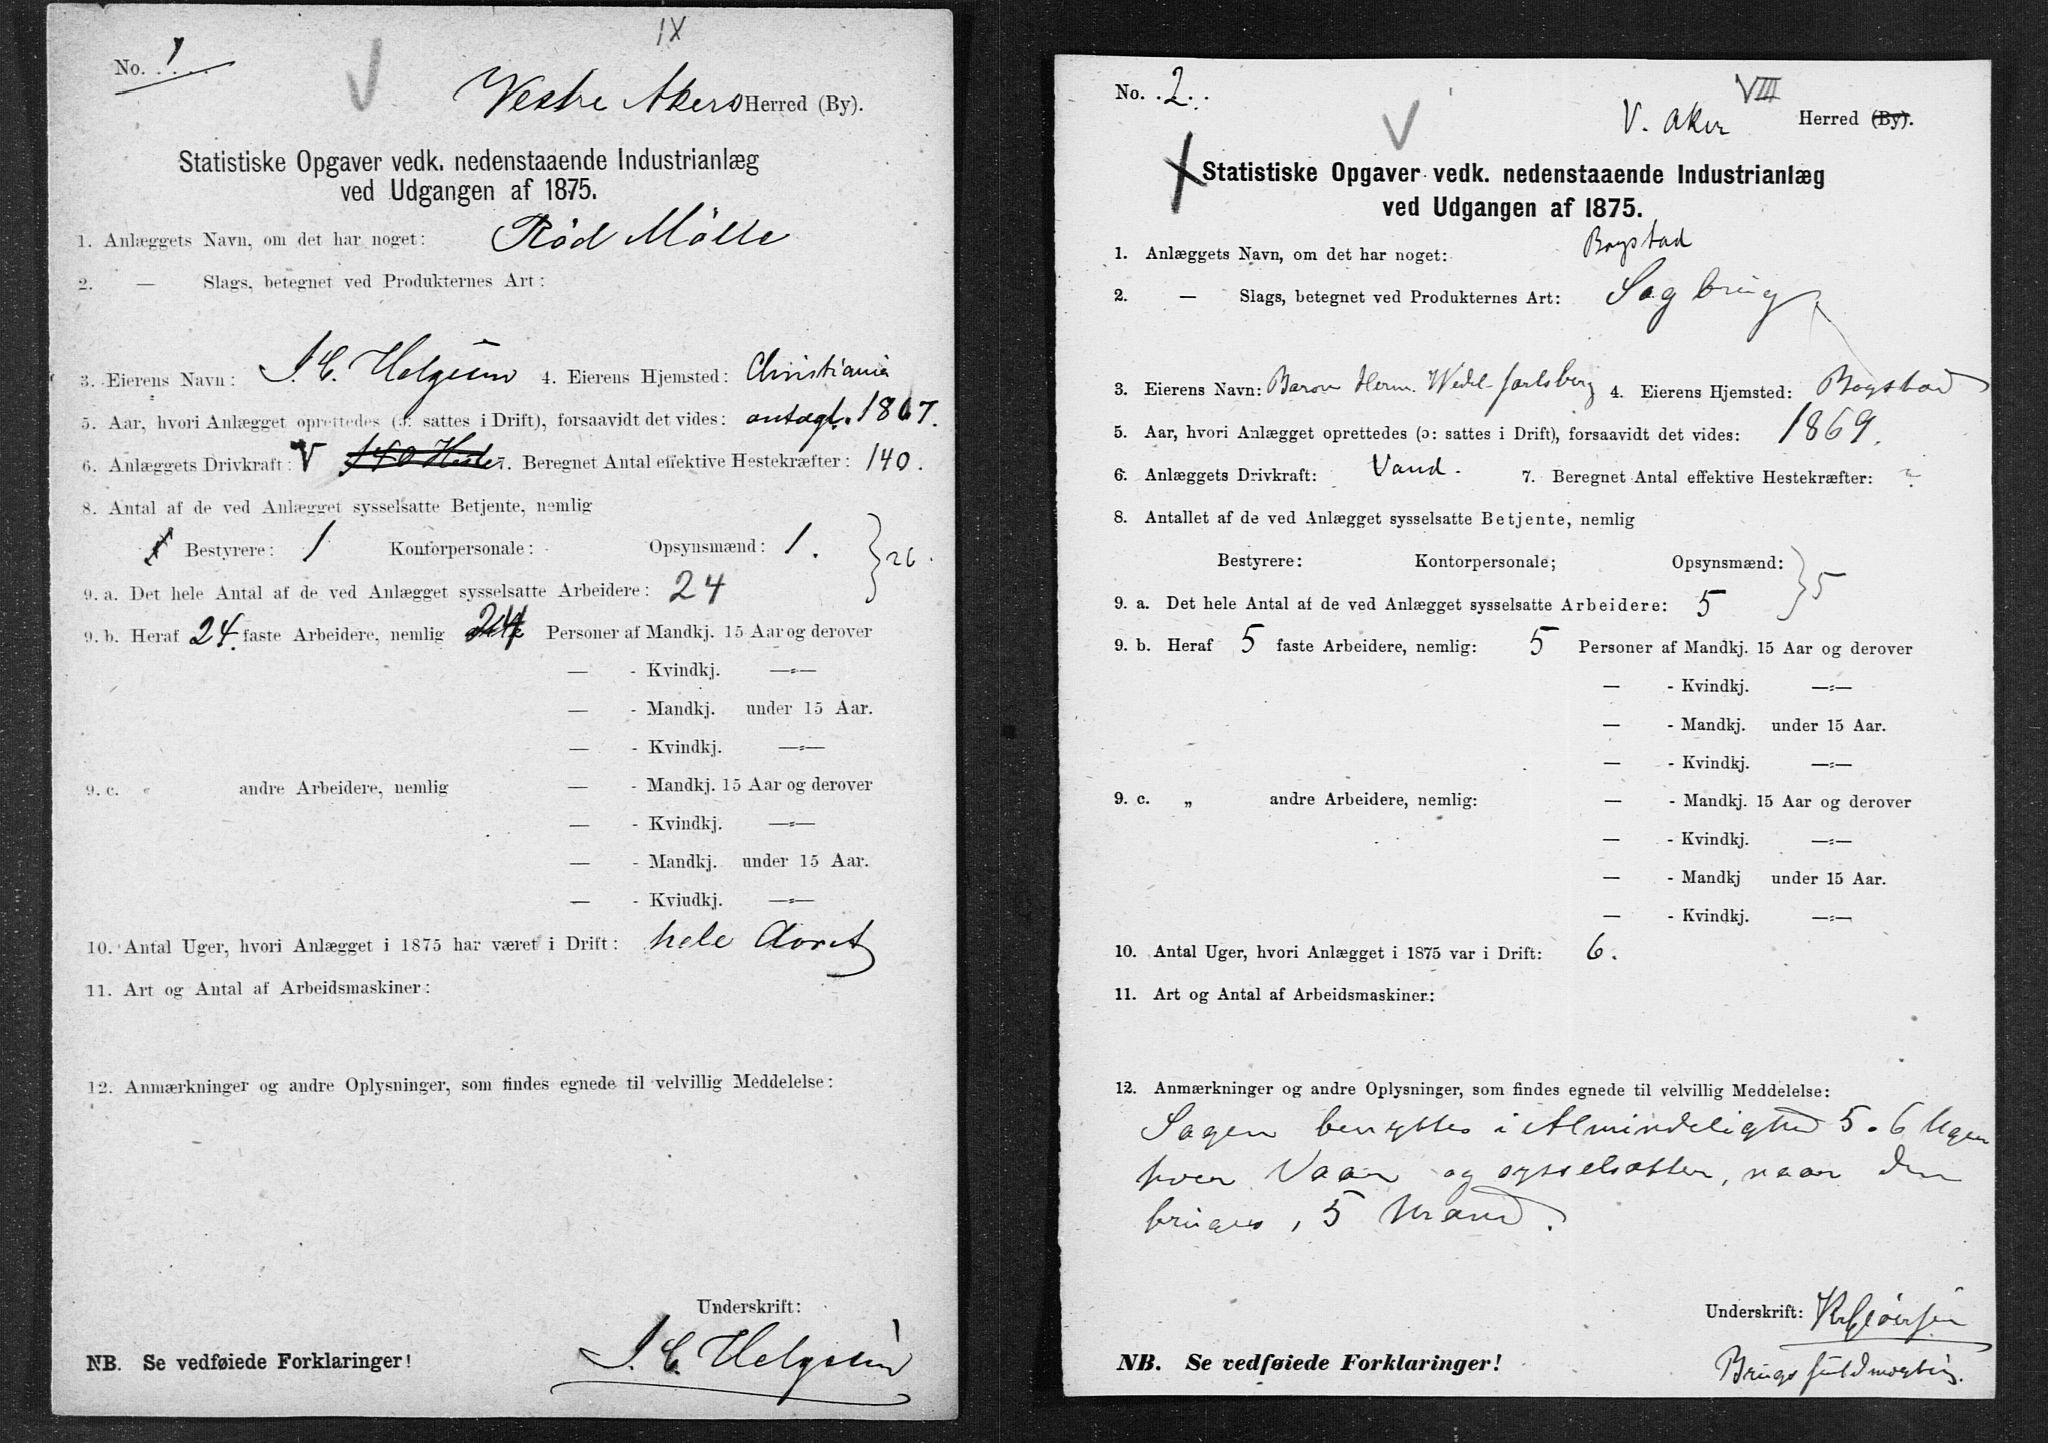 IX
No. 1
Vestre Akers Herred (By).
Statistiske Opgaver vedk. nedenstaaende Industrianlæg
ved Udgangen af 1875.
1. Anlæggets Navn, om det har noget: Rød Mølle
2. — Slags, betegnet ved Produkternes Art:
3. Eierens Navn: J. E. Helgesen 4. Eierens Hjemsted: Christiania
5. Aar, hvori Anlægget oprettedes (ɔ: sattes i Drift), forsaavidt det vides: antagl. 1867.
6. Anlæggets Drivkraft: V 140 Heste 7. Beregnet Antal effektive Hestekræfter: 140.
8. Antal af de ved Anlægget sysselsatte Betjente, nemlig
Bestyrere: 1 Kontorpersonale: Opsynsmænd: 1. } 26.
9. a. Det hele Antal af de ved Anlægget sysselsatte Arbeidere: 24
9. b. Heraf 24. faste Arbeidere, nemlig 24 Personer af Mandkj. 15 Aar og derover
— - Kvindkj. —„—
— - Mandkj. under 15 Aar.
— - Kvindkj. —„—
9. c. „ andre Arbeidere, nemlig — - Mandkj. 15 Aar og derover
— - Kvindkj. —„—
— - Mandkj. under 15 Aar.
— - Kviudkj. —„—
10. Antal Uger, hvori Anlægget i 1875 har været i Drift: hele Aaret
11. Art og Antal af Arbeidsmaskiner:
12. Anmærkninger og andre Oplysninger, som findes egnede til velvillig Meddelelse:
Underskrift:
J. E. Helgesen
NB. Se vedføiede Forklaringer!
No. 2
VIII
V. Aker Herred (By).
Statistiske Opgaver vedk. nedenstaaende Industrianlæg
ved Udgangen af 1875.
1. Anlæggets Navn, om det har noget: Bogstad
2. — Slags, betegnet ved Produkternes Art: Sagbrug
3. Eierens Navn: Baron Herm. Wedel-Jarlsberg 4. Eierens Hjemsted: Bogstad
5. Aar, hvori Anlægget oprettedes (ɔ: sattes i Drift), forsaavidt det vides: 1869.
6. Anlæggets Drivkraft: Vand. 7. Beregnet Antal effektive Hestekræfter: ?
8. Antallet af de ved Anlægget sysselsatte Betjente, nemlig
Bestyrere: Kontorpersonale; Opsynsmænd: } 5
9. a. Det hele Antal af de ved Anlægget sysselsatte Arbeidere: 5
9. b. Heraf 5 faste Arbeidere, nemlig: 5 Personer af Mandkj. 15 Aar og derover
— - Kvindkj. —„—
— - Mandkj. under 15 Aar.
— - Kvindkj. —„—
9. c. „ andre Arbeidere, nemlig: — - Mandkj. 15 Aar og derover
— - Kvindkj. —„—
— - Mandkj under 15 Aar.
— - Kvindkj. —„—
10. Antal Uger, hvori Anlægget i 1875 var i Drift: 6.
11. Art og Antal af Arbeidsmaskiner:
12. Anmærkninger og andre Oplysninger, som findes egnede til velvillig Meddelelse:
Sagen benyttes i Almindelighed 5 à 6 Uger
hver Vaar og sysselsætter, naar den
bruges, 5 Mand.
Underskrift:
Brugsfuldmægtig.
NB. Se vedføiede Forklaringer!